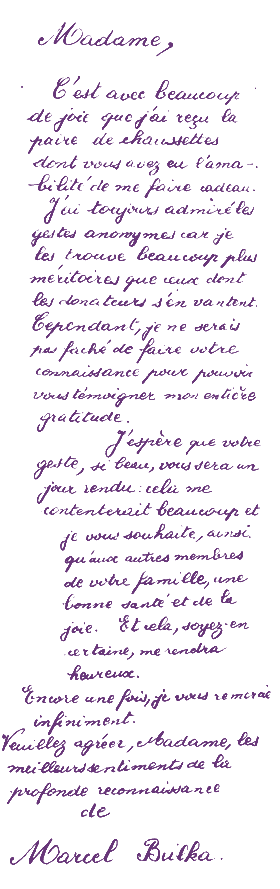 Madame,
C'est avec beaucoup
de joie que j'ai reçu la
paire de chaussettes
dont vous avez eu l'ama-
bilité de me faire cadeau.
J'ai toujours admiré les
gestes anonymes car je
les trouve beaucoup plus
méritoires que ceux dont
les donateurs s'en vantent.
Cependant, je ne serais
pas faché de faire votre
connaissance pour pouvoir
vous témoigner mon entière
gratitude.
J'espère que votre
geste, si beau, vous sera un
jour rendu: celà me
contenterait beaucoup et
je vous souhaite, ainsi
qu'aux autres membres
de votre famille, une
bonne santé et de la
joie. Et cela, soyez-en
certaine, me rendra
heureux.
Encore une fois, je vous remercie
infiniment.
Veuillez agréer, Madame, les
meilleurs sentiments de la
profonde reconnaissance
de
Marcel Bulka.